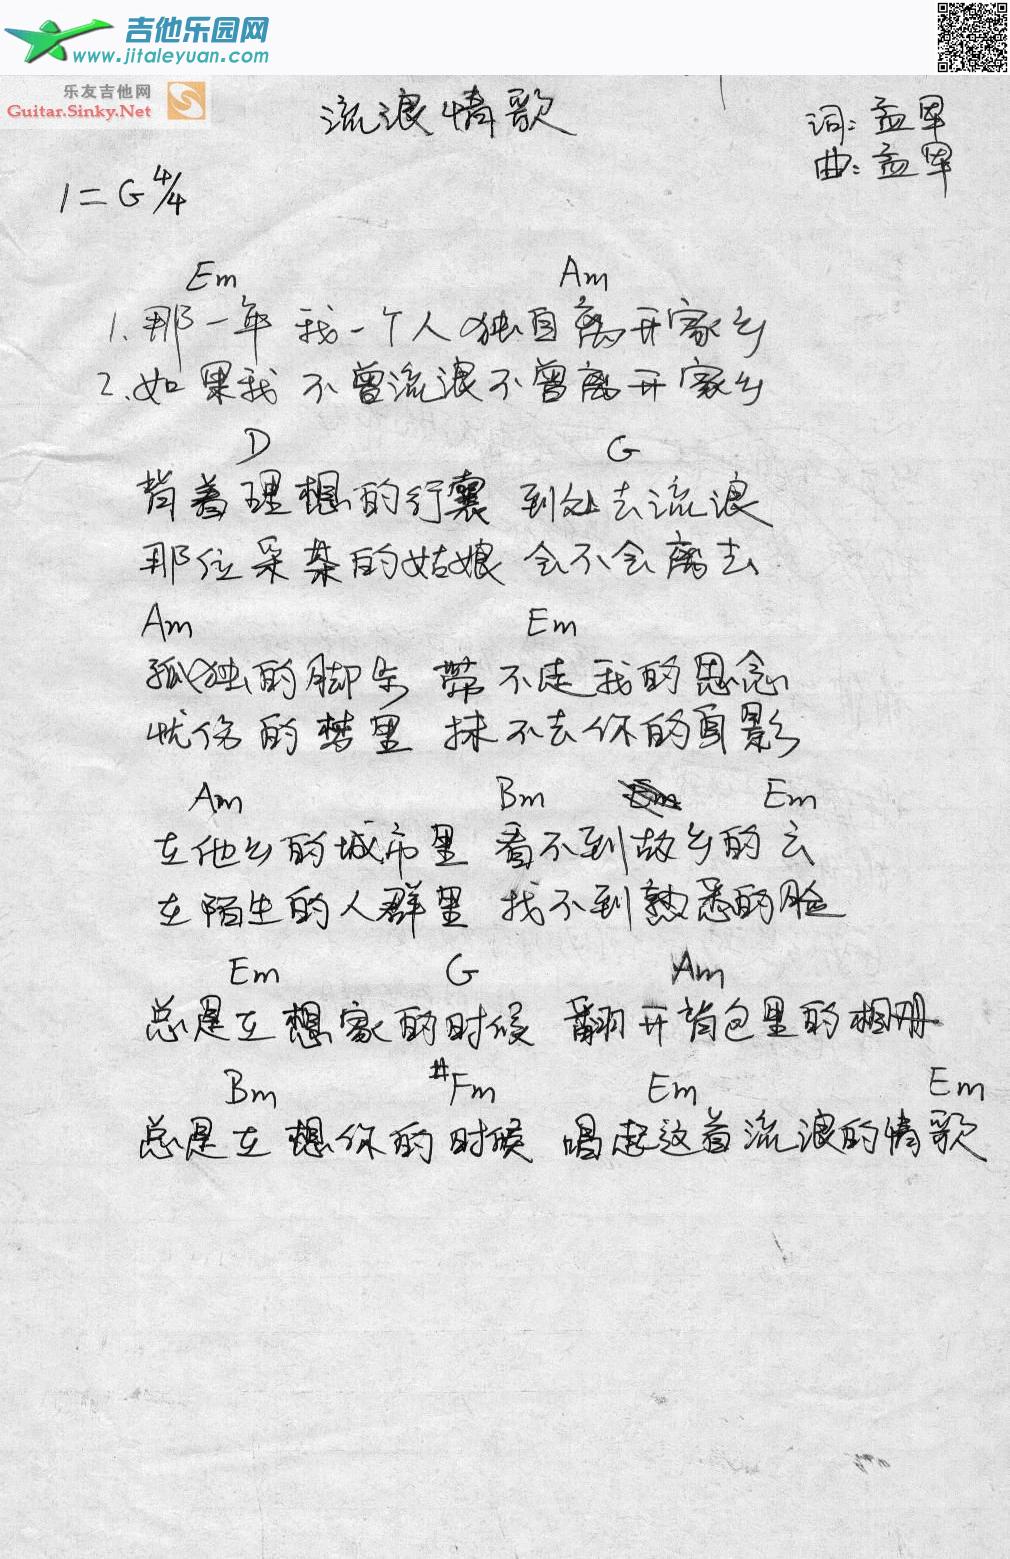 吉他乐园网
www.jitaleyuan.com
乐友吉他网
Guitar.Sinky.Net
流浪情歌
词: 孟军
曲: 孟军
1=G 4/4
Em Am
1. 那一年 我一个人独自离开家乡
2. 如果我 不曾流浪不曾离开家乡
D G
背着理想的行囊 到处去流浪
那位采茶的姑娘 会不会离去
Am Em
孤独的脚步 带不走我的思念
忧伤的梦里 抹不去你的身影
Am Bm Em Em
在他乡的城市里 看不到故乡的云
在陌生的人群里 找不到熟悉的脸
Em G Am
总是在想家的时候 翻开背包里的相册
Bm #Fm Em Em
总是在想你的时候 唱起这首流浪的情歌